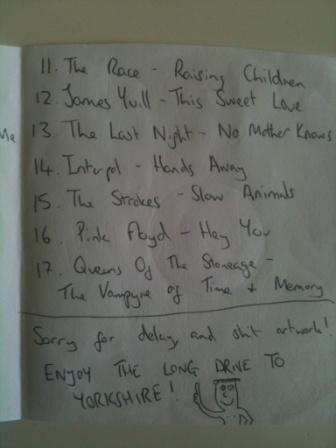 11. The Race - Raising Children
12. James Yuill - This Sweet Love
Me
13. The Last Night - No Mother Knows
14. Interpol - Hands Away
15. The Strokes - Slow Animals
16. Pink Floyd - Hey You
17. Queens Of The Stoneage -
The Vampyre of Time + Memory
Sorry for delay, and shit artwork!
ENJOY THE LONG DRIVE TO
YORKSHIRE!